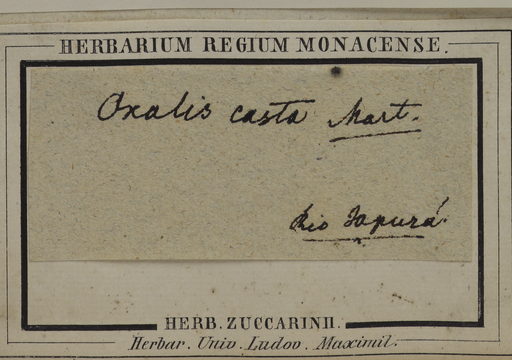 HERBARIUM REGIUM MONACENSE.
Oxalis casta Mart.
Rio Japurá
HERB. ZUCCARINII.
Herbar. Univ. Ludov. Maximil.